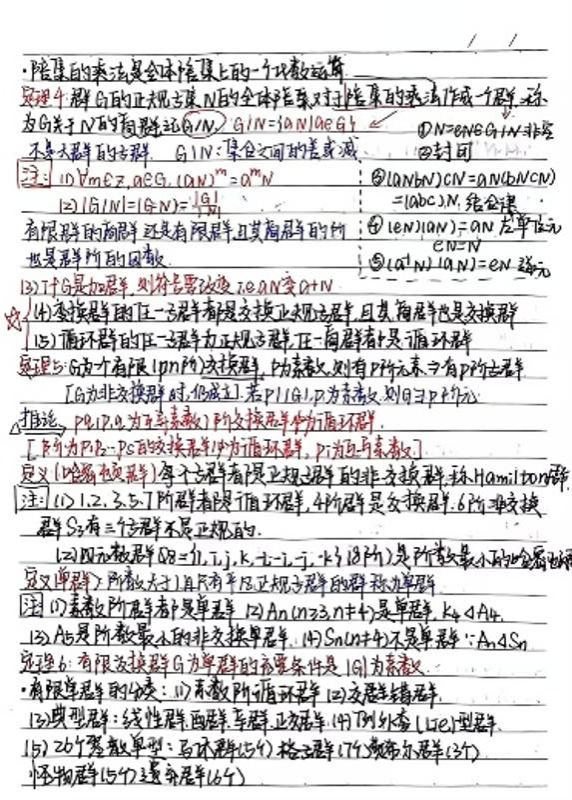 ·陪集的乘法是全体陪集上的一个代数运算
定理4:群G的正规子集N的全体陪集对于陪集的乘法作成一个群.称
为G关于N的商群记G/N. G/N={aN|a∈G}
①N=eN∈G/N.非空
不是大群的子群. G|N:集合之间的差或减
②封闭
注: (1)∀m∈Z,a∈G,(aN)^m=a^mN
③(aNbN)CN=aN(bNCN)
(2)|G/N|=(G:N)=|G|/|N|
=(abc)N.结合律
有限群的商群还是有限群,且其商群的阶
④(eN)(aN)=aN 左单位元
eN=N
也是群阶的因数.
⑤(a⁻¹N)(aN)=eN 逆元
(3)若G是加群,则符号需改变 i.e aN变a+N
☆(4)交换群的任一子群都是交换正规子群,且其商群也是交换群
(5)循环群的任一子群为正规子群,任一商群都是循环群
定理5:G为个有限(pn阶)交换群,P为素数,则有P阶元素⇒有P阶子群
[G为非交换群时,仍成立].若p||G|,p为素数,则G∃p阶元
推论 pq(p,q为互异素数)阶交换群必为循环群.
[阶为P₁P₂…Ps的交换群必为循环群,pi为互异素数]
定义(哈密顿群)每个子群都是正规子群的非交换群,称Hamilton群
注: (1)1.2.3.5.7阶群都是循环群,4阶群是交换群.6阶非交换
群S₃有三个子群不是正规的.
(2)四元数群Q8={1,i,j,k,-1,-i,-j,-k}(8阶)是阶数最小的哈密顿群
定义(单群)阶数大于1且只有平凡正规子群的群称为单群
注 (1)素数阶群都是单群 (2)An(n≥3,n≠4)是单群,K₄◁A₄.
(3)A₅是阶数最小的非交换单群. (4)Sn(n≠4)不是单群∵An◁Sn
定理6:有限交换群G为单群的充要条件是|G|为素数.
·有限单群的分类:(1)素数阶循环群 (2)交错群.
(3)典型群:线性群 酉群.辛群.正交群 (4)例外李(Lie)型群.
(5)26个散单型:马环群(5个)格子群(7个)费希尔群(3个)
怪物群(5个)逐弃群(6个)